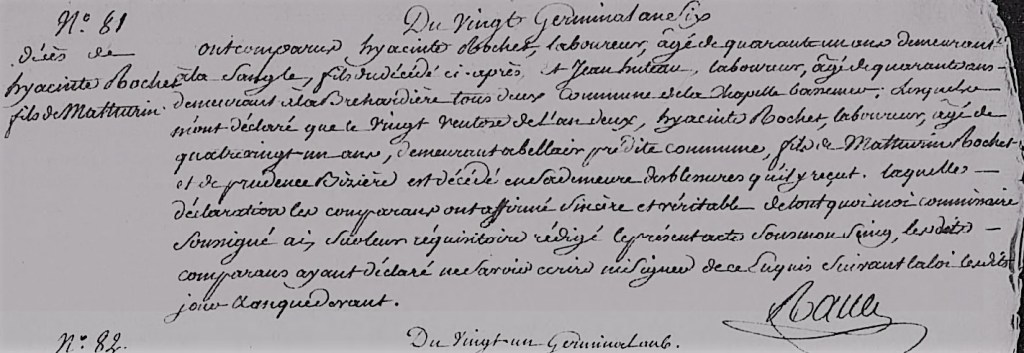 N.º 81
Du Vingt Germinal an Six
décès de
hyacinte Rochet
fils de Mathurin
ont comparus hyacinte Rochet, laboureur, âgé de quarante un ans demeurant
à la Sangle, fils du décédé ci-après, et Jean huteau, laboureur, âgé de quarante ans
demeurant à la Brehardière tous deux Commune de la Chapelle basse mer; Lesquels
m'ont déclaré que le Vingt Ventose de l'an deux, hyacinte Rochet, laboureur, âgé de
quatrevingt un ans, demeurant a bellair prédite commune, fils de Mathurin Rochet
et de prudence Bizière est décédé en sa demeure des blessures qu'il y reçut. laquelle
déclaration les comparans ont affirmé Sincère et véritable de tout quoi moi commissaire
Sousigné ai, Sur leur réquisitoire rédigé le présent acte Sous mon Seing, les dits
comparans ayant déclaré ne Savoir ecrire ni Signer de ce Enquis Suivant la loi lesdits
jour & an que devant.
N.º 82.
Du Vingt un Germinal